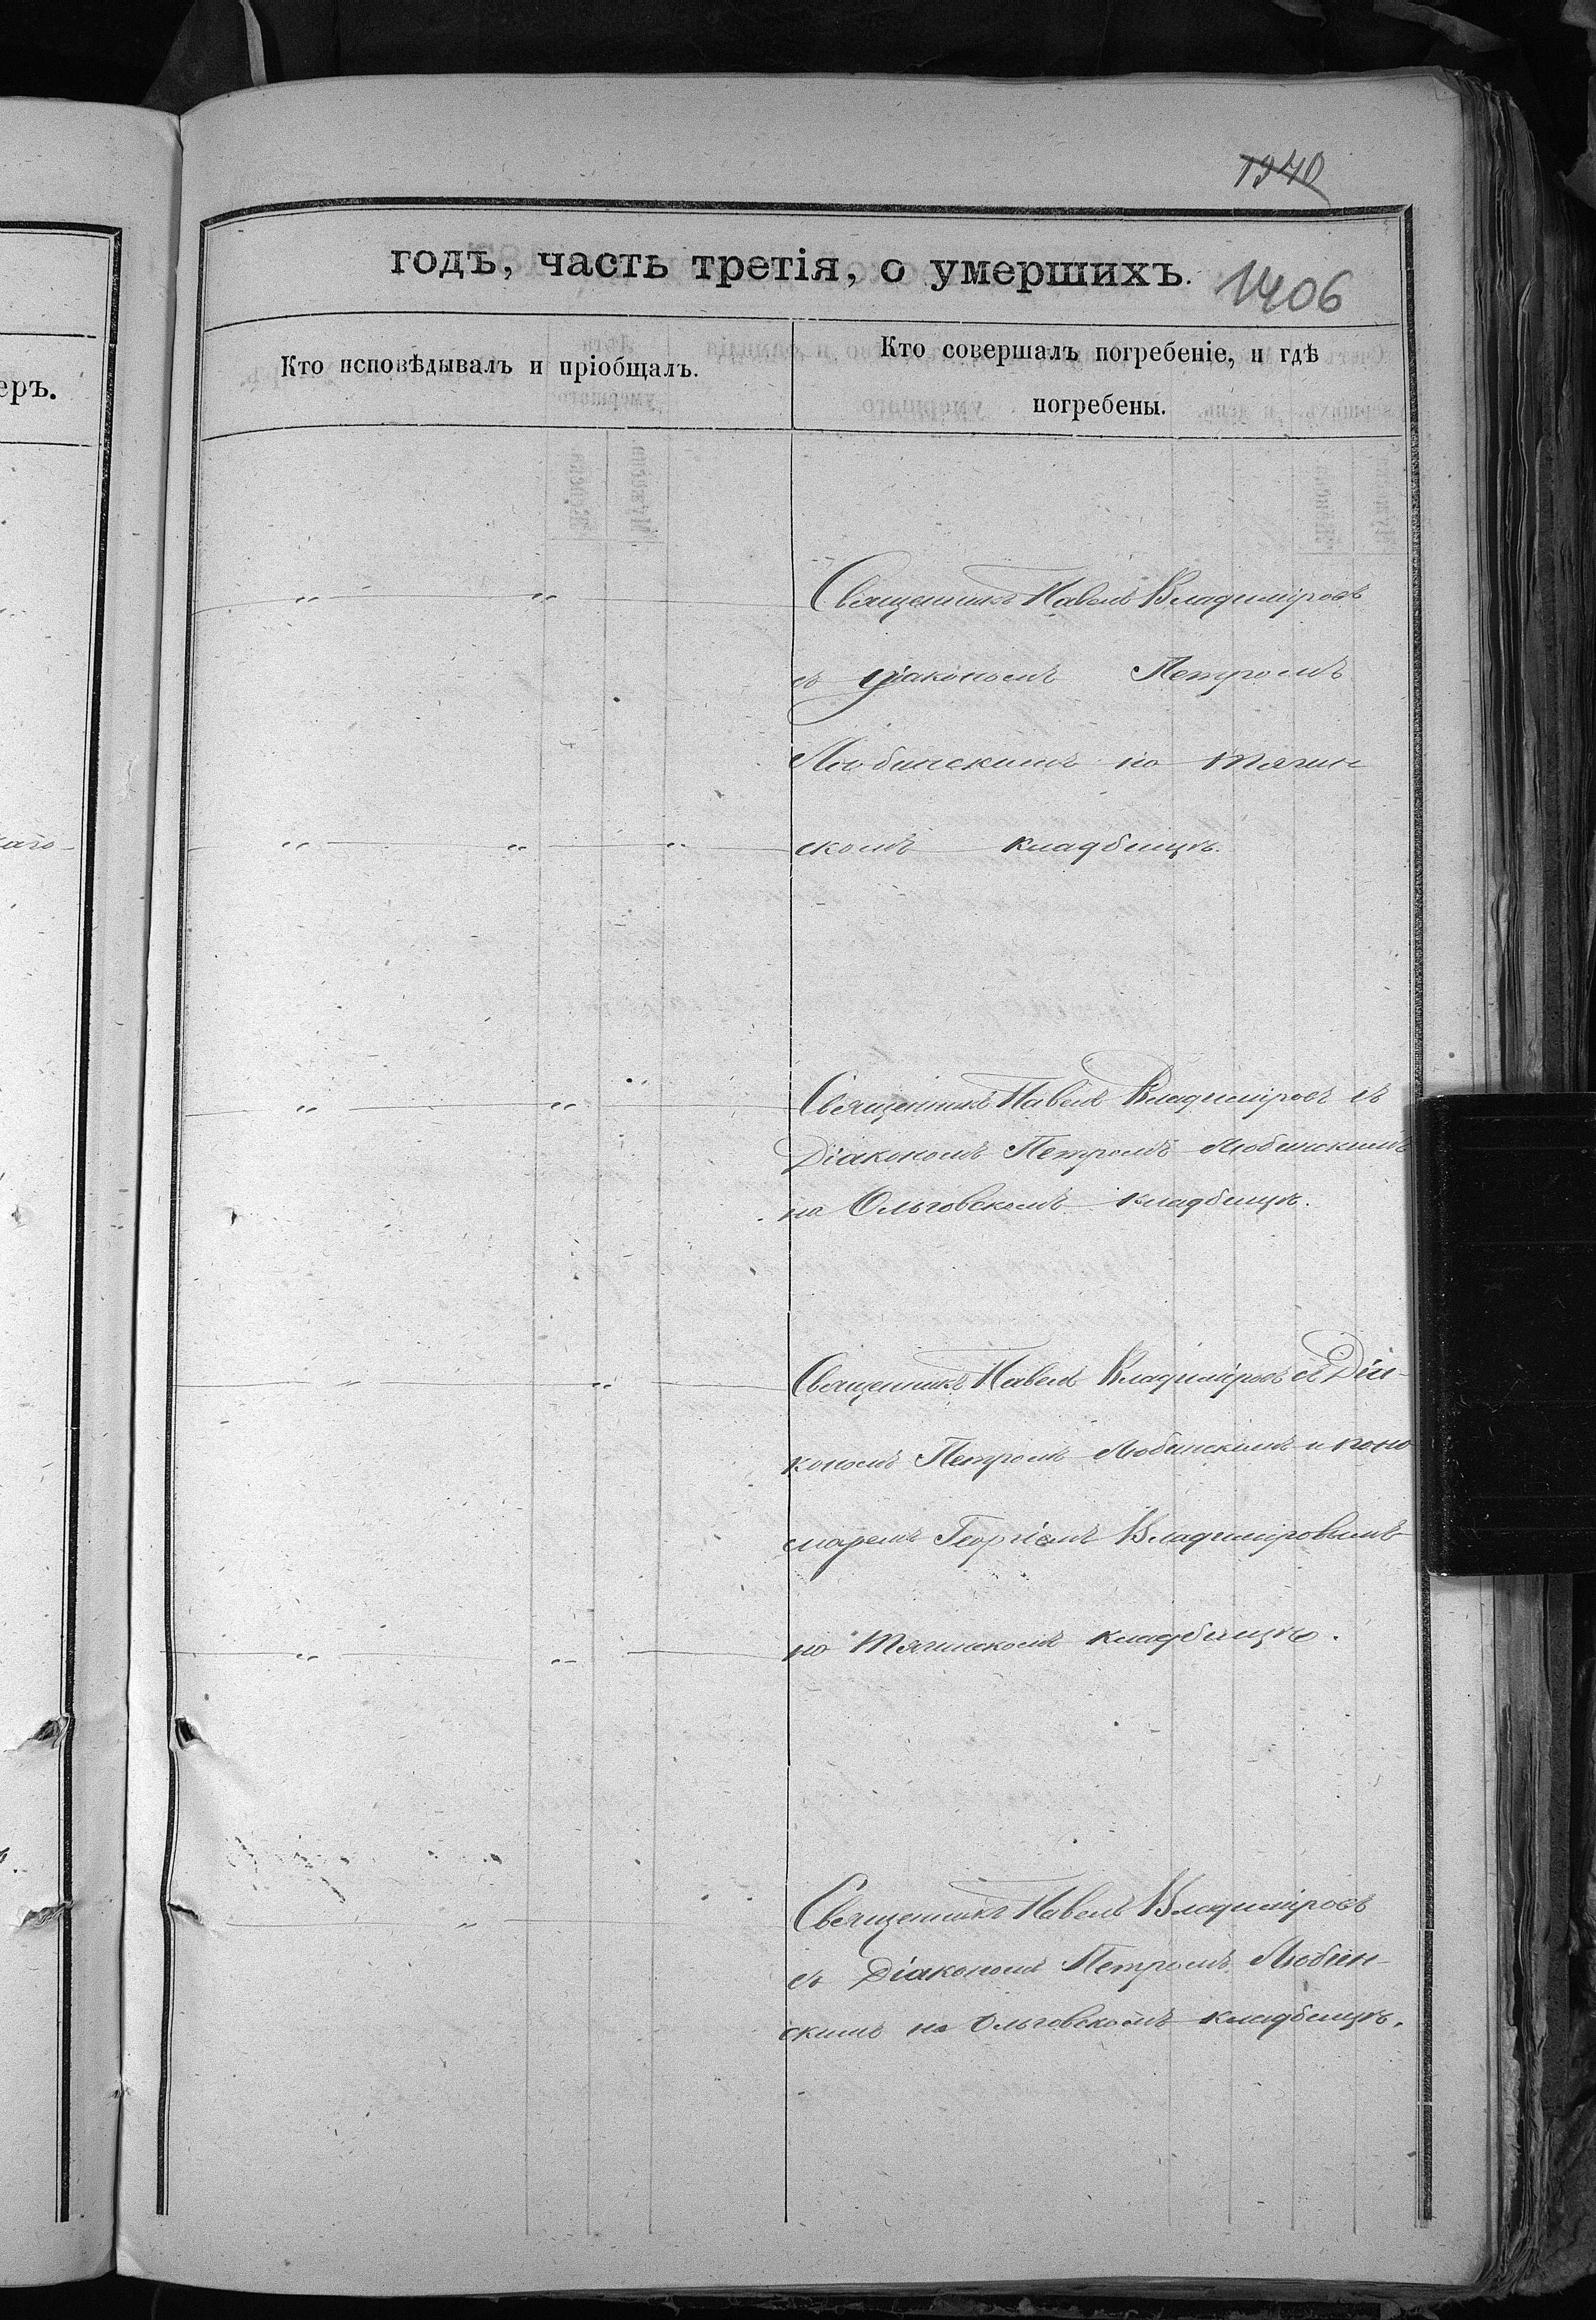 1940
годъ, часть третія, о умершихъ.
1406
Кто исповѣдывалъ и пріобщалъ.
Кто совершалъ погребеніе, и гдѣ
погребены.
еръ.
Священникъ Павелъ Владиміровъ
съ діакономъ Петромъ
Любинскимъ на Тягин
скомъ кладбищѣ.
аго
Священникъ Павелъ Владиміровъ съ
Діакономъ Петромъ Любинскимъ
на Ольговскомъ кладбищѣ.
Священникъ Павелъ Владиміровъ съ Діа-
кономъ Петромъ Любинскимъ и поно
маремъ Георгіемъ Владиміровымъ
на Тягинскомъ кладбищѣ.
Священникъ Павелъ Владиміровъ
съ Діакономъ Петромъ Любин-
скимъ на Ольговскомъ кладбищѣ.